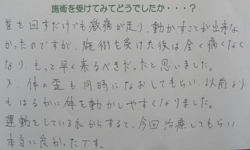 施術を受けてみてどうでしたか・・・?
首を回すだけでも激痛が走り、動かすことが出来な
かったのですが、施術を受けた後は全く痛くなく
なり、もっと早く来るべきだったと思いました。
又、体の歪も同時になおしてもらい、以前より
もはるかに体を動かしやすくなりました。
運動をしている私からすると、今回治療してもらい
本当に良かったです。